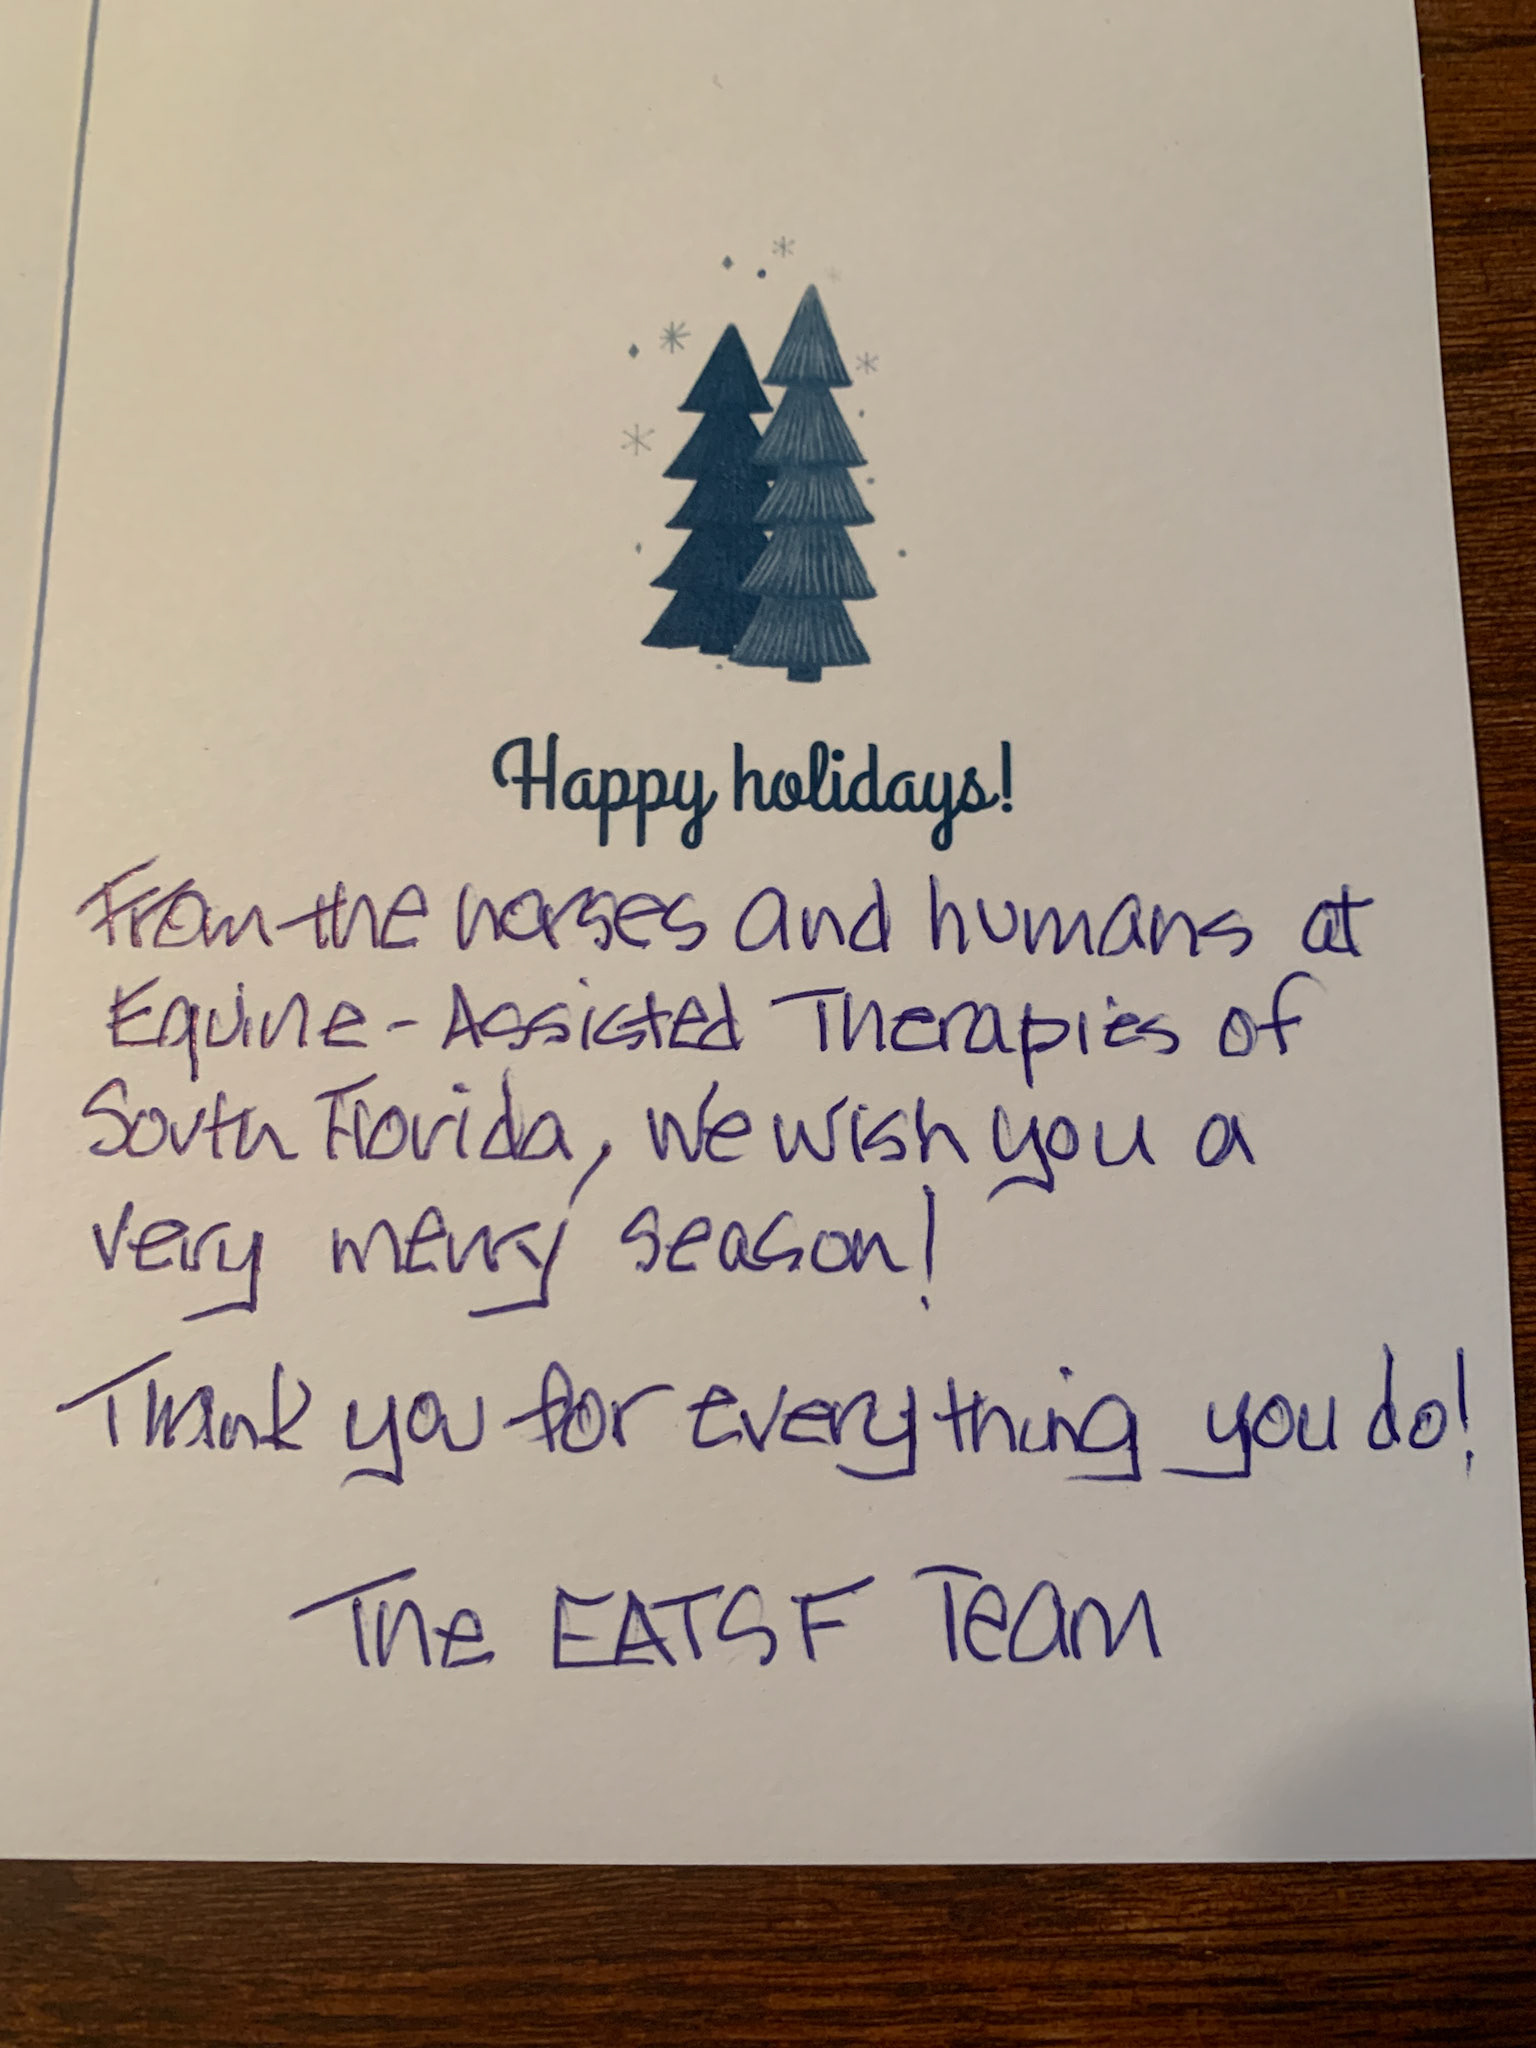 Happy holidays!
From the horses and humans at
Equine-Assisted Therapies of
South Florida, we wish you a
very merry season!
Thank you for everything you do!
The EATSF Team